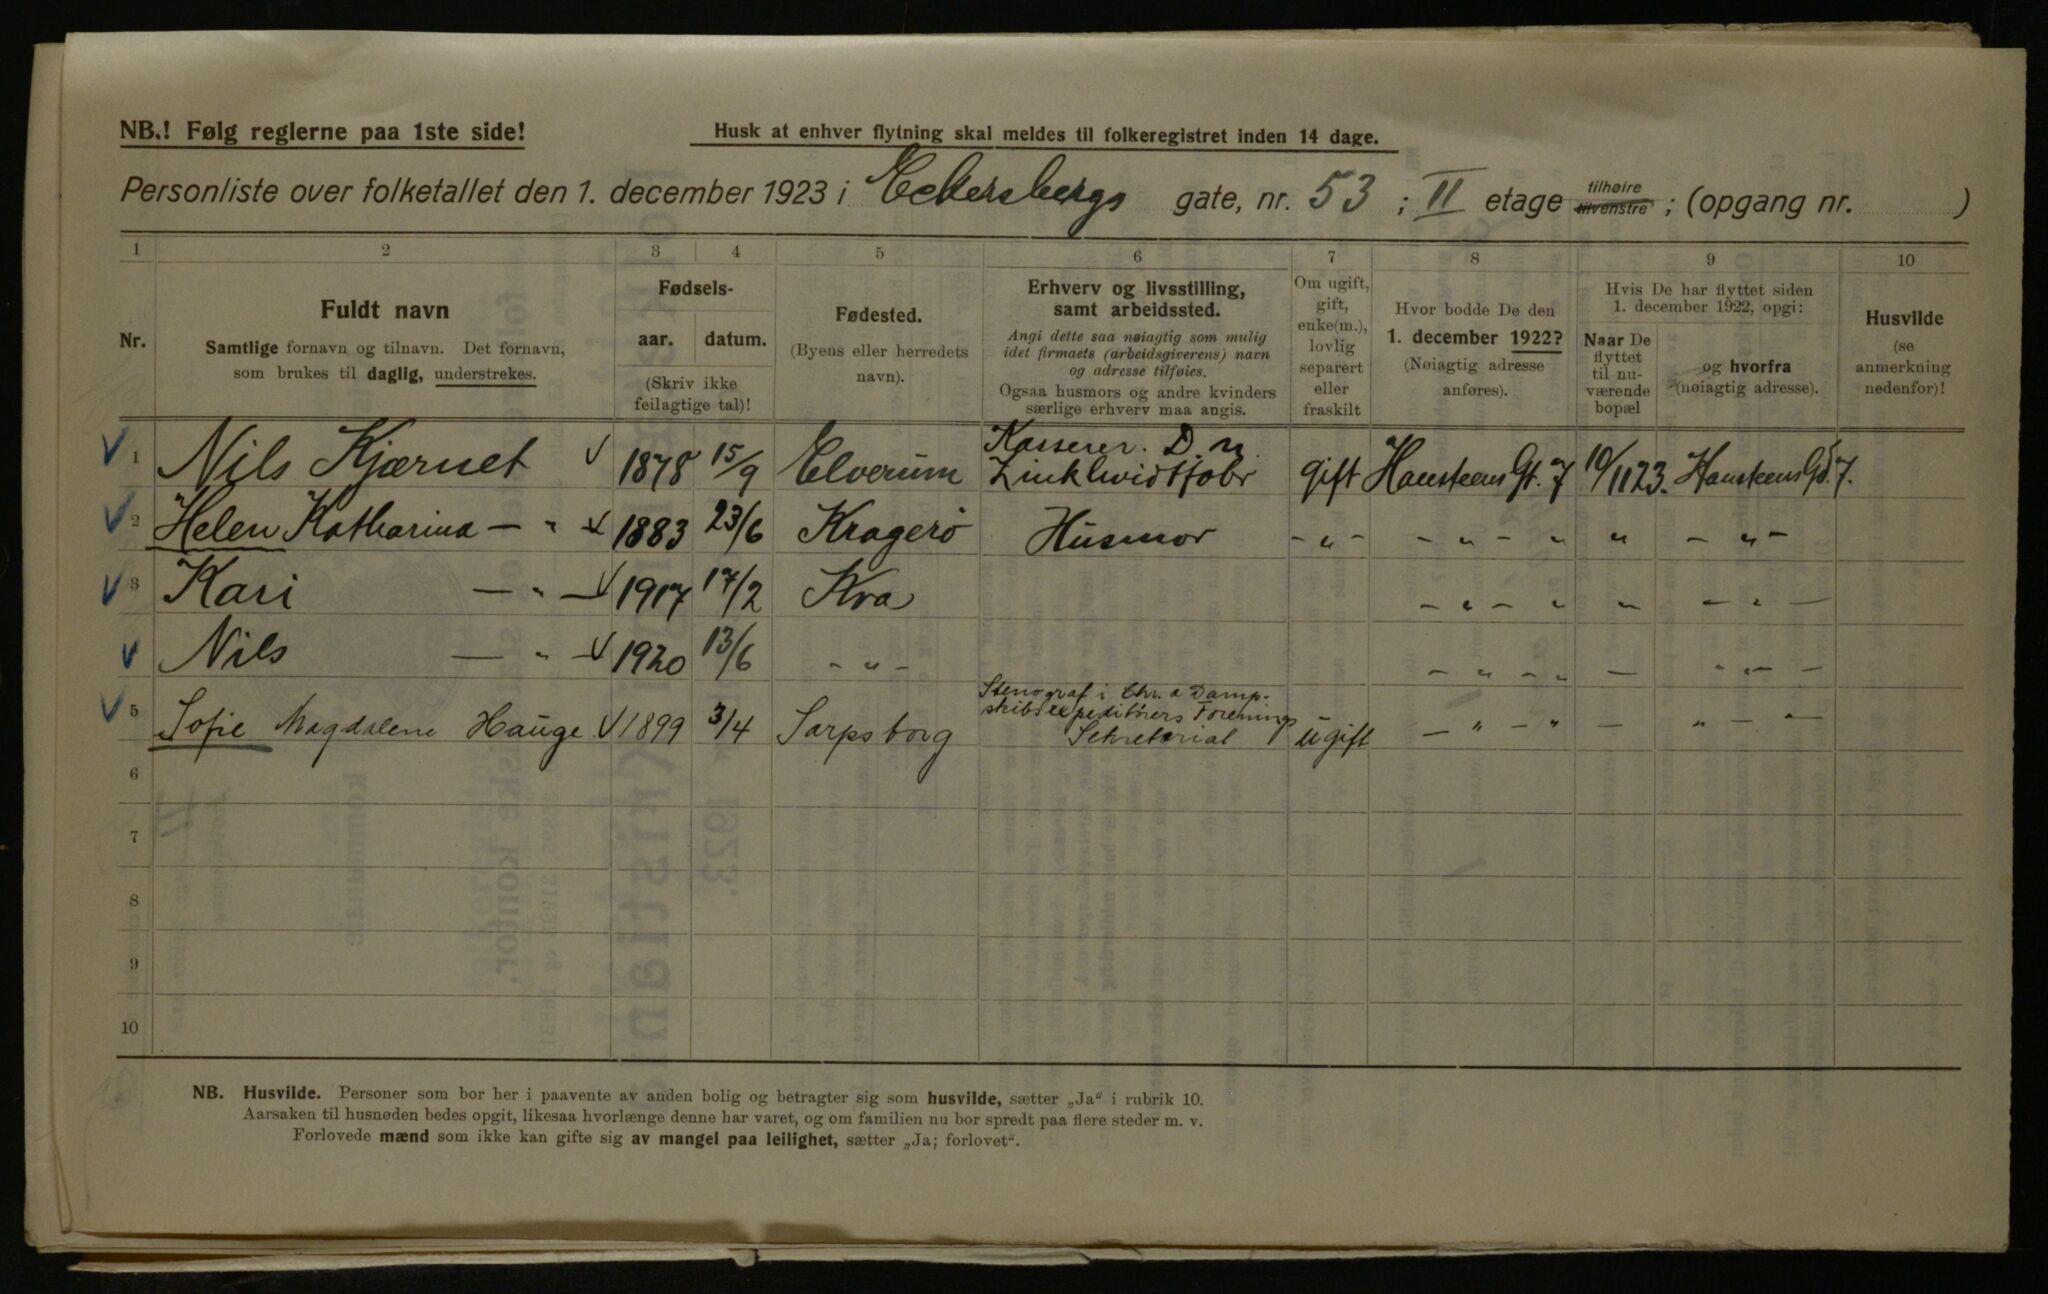 NB.! Følg reglerne paa 1ste side!
Husk at enhver flytning skal meldes til folkeregistret inden 14 dage.
Personliste over folketallet den 1. december 1923 i Eckersbergs gate, nr. 53 ; II etage tilhøire tilvenstre ; (opgang nr. )
1 2 3 4 5 6 7 8 9 10
Nr.
Fuldt navn
Samtlige fornavn og tilnavn. Det fornavn,
som brukes til daglig, understrekes.
Fødsels-
aar. datum.
(Skriv ikke
feilagtige tal)!
Fødested.
(Byens eller herredets
navn).
Erhverv og livsstilling,
samt arbeidssted.
Angi dette saa nøiagtig som mulig
idet firmaets (arbeidsgiverens) navn
og adresse tilføies.
Ogsaa husmors og andre kvinders
særlige erhverv maa angis.
Om ugift,
gift,
enke(m.),
lovlig
separert
eller
fraskilt
Hvor bodde De den
1. december 1922?
(Nøiagtig adresse
anføres).
Hvis De har flyttet siden
1. december 1922, opgi:
Naar De
flyttet
til nu-
værende
bopæl
og hvorfra
(nøiagtig adresse).
Husvilde
(se
anmerkning
nedenfor)!
1 Nils Kjærnet 1878 15/9 Elverum Kasserer. D. n. Zinkhvidtfabr gift Hansteens Gt. 7 10/11 23. Hansteens Gt. 7.
2 Helen Katharina — " — 1883 23/6 Kragerø Husmor - " - - " - " " - " -
3 Kari — " — 1917 17/2 Kra - " - " " — " —
4 Nils — " — 1920 13/6 - " - - " - " — " - —
5 Sofie Magdalene Hauge 1899 3/4 Sarpsborg Stenograf i Chr.a Damp-
skibsexpeditørers Forenings
Sekretariat ugift — " — " — " — " —
6
7
8
9
10
NB. Husvilde. Personer som bor her i paavente av anden bolig og betragter sig som husvilde, sætter „Ja" i rubrik 10.
Aarsaken til husnøden bedes opgit, likesaa hvorlænge denne har varet, og om familien nu bor spredt paa flere steder m. v.
Forlovede mænd som ikke kan gifte sig av mangel paa leilighet, sætter „Ja; forlovet".